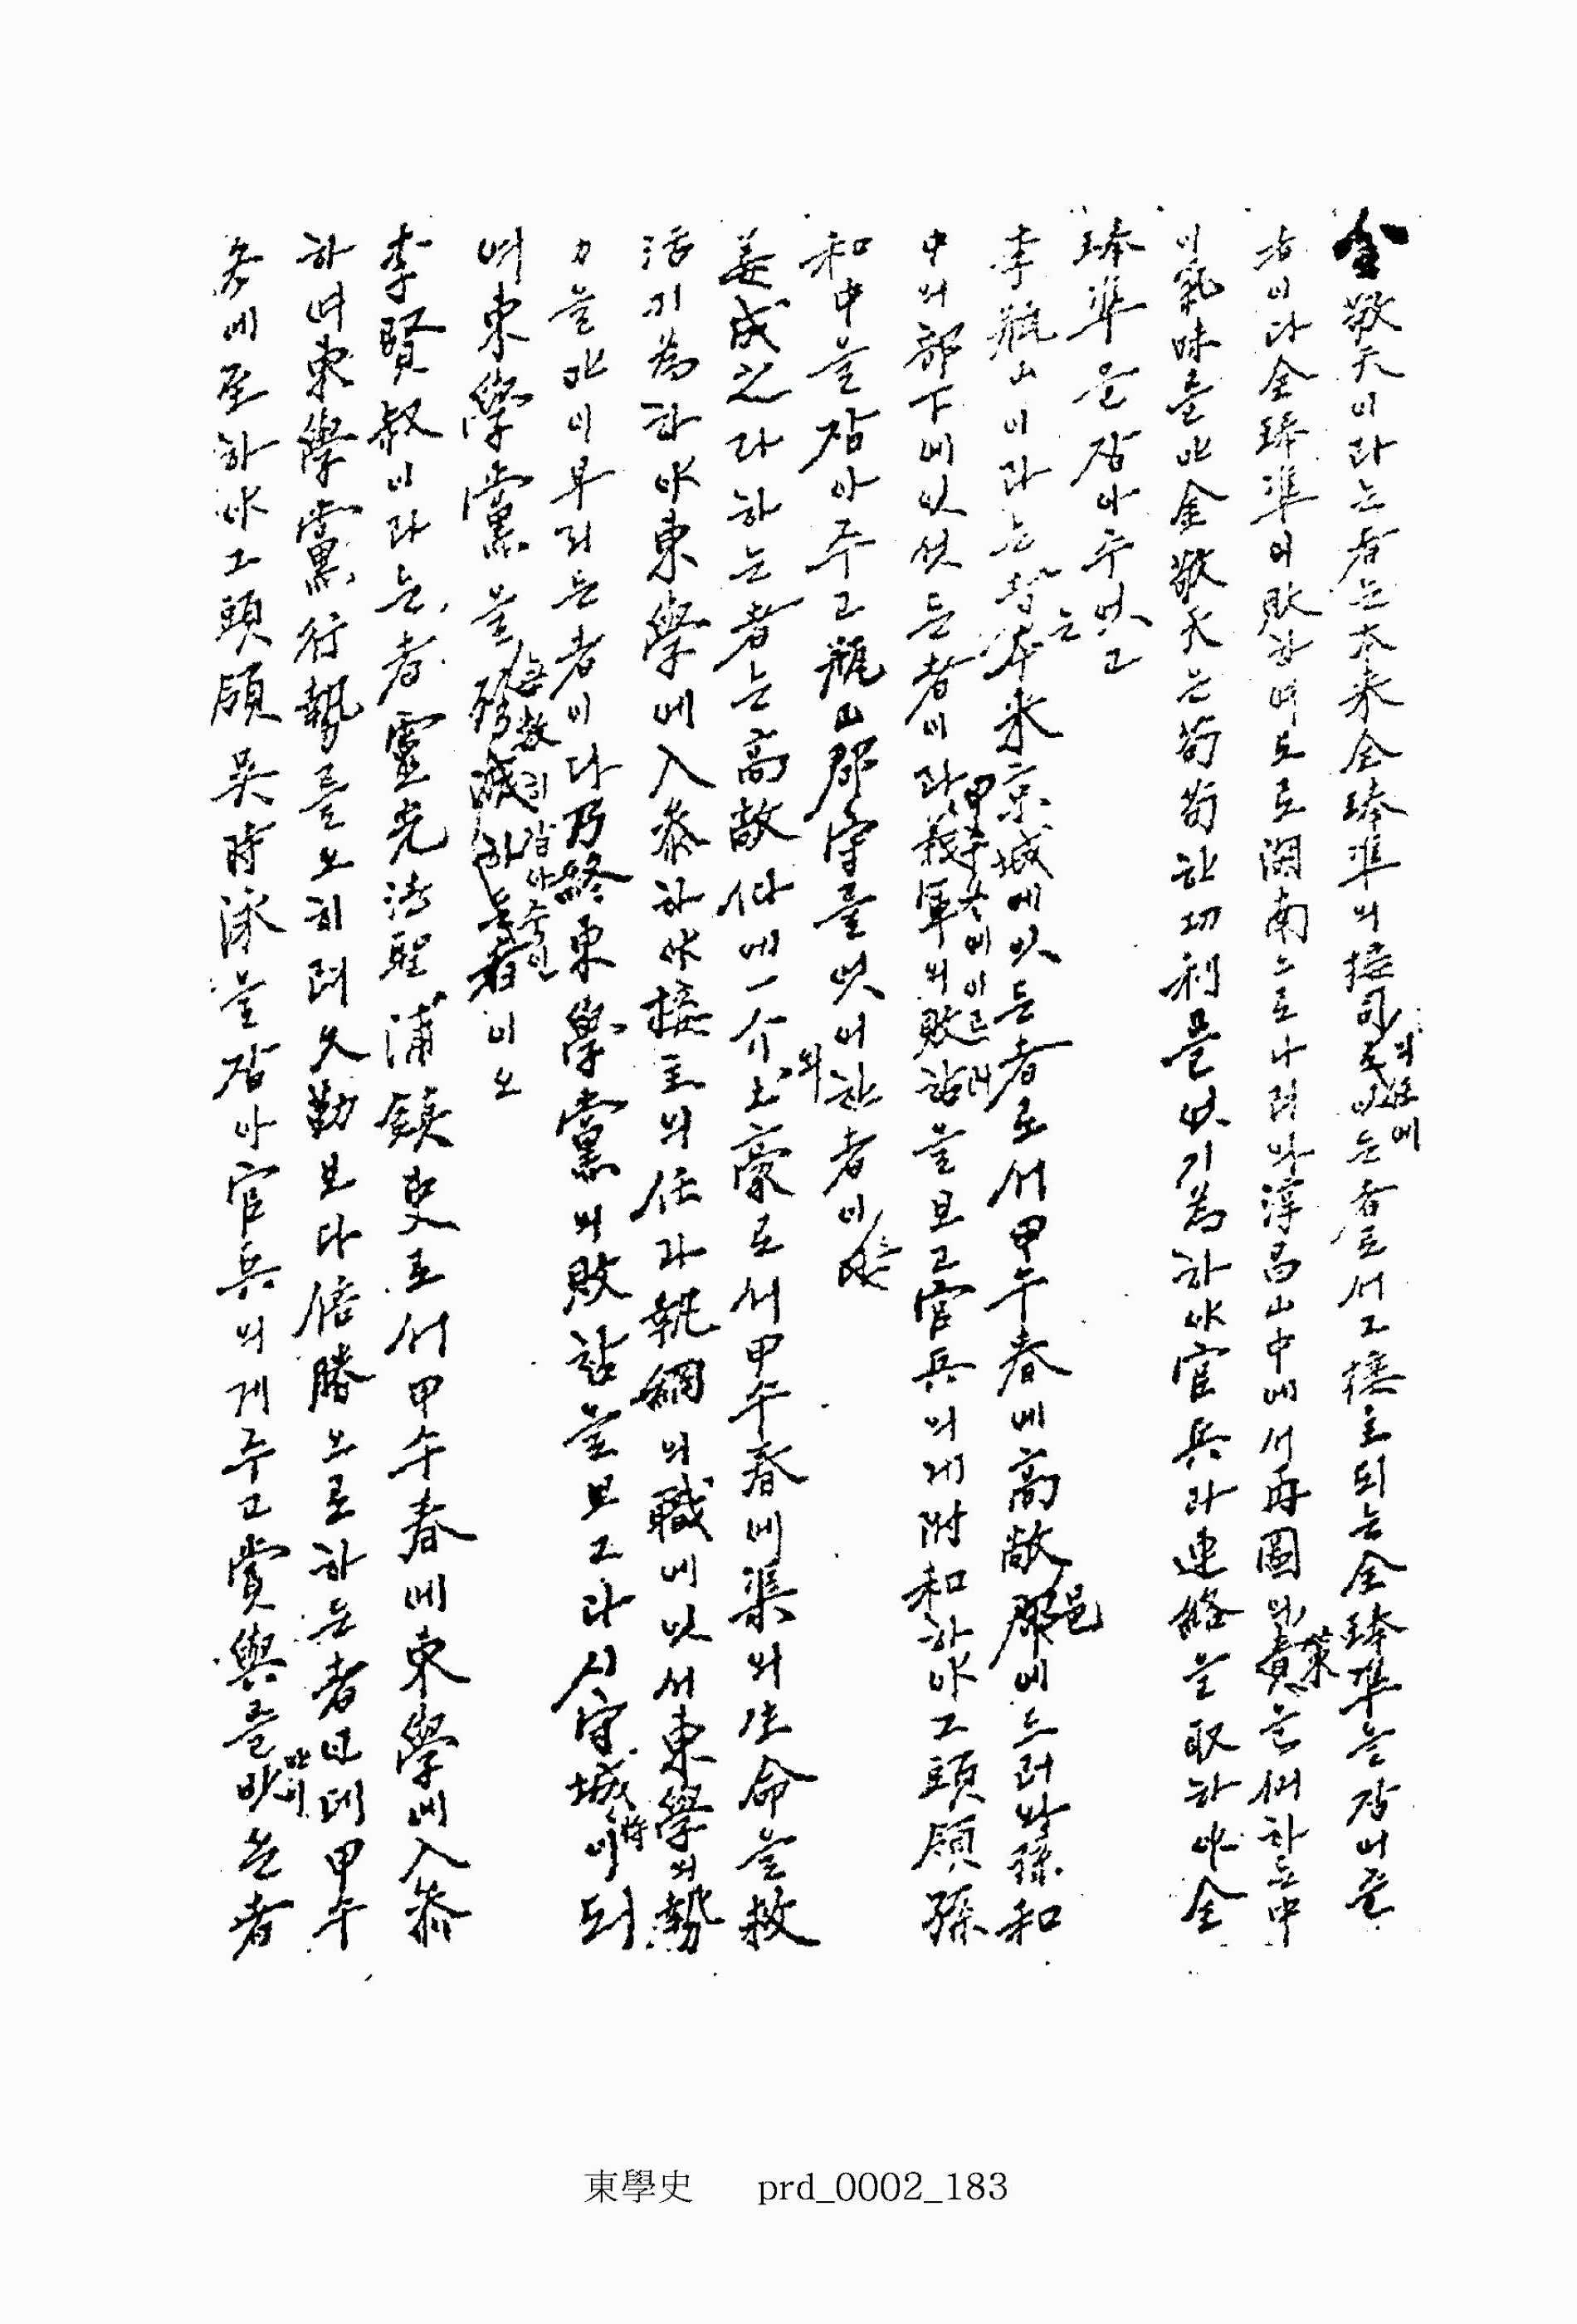 金敬天이라는者는本来全琫準의接司의任에잇는者로서그接主되는全琫準을잡어준
者이라全琫準이敗하여도로湖南으로나려와淳昌山中에서再圖의策을생하는中
이氣味를안金敬天은苟苟한功利를엇기爲하야官兵과連絡을取하야全
琫準을잡아주엇고
李甁山이라는者는本来京城에잇든者로서甲午春에高敞邑에드러와孫和
中의部下에잇섯든者이라甲午冬에이르러義軍의敗함을보고官兵의게附和하야그頭領孫
和中을잡아주고甁山郡守를엇어한者이며
姜成之라하는者는高敞仙에一介의土豪로서甲午春에渠의生命을救
活기爲하야東學에入叅하야接主의任과執綱의職에잇서東學의勢
力을만이부리든者이다乃終東學黨의敗함을보고다시守城將이되
여東學黨을無數히잡아죽인者이오
李賢叔이라는者는靈光法聖浦鎮吏로서甲午春에東學에入叅
하여東學黨行勢를노히려久勤보다倍勝으로하든者인데甲午
冬에至하야그頭領吳時泳을잡아官兵의게주고賞與를만이밧은者
東學史 prd_0002_183